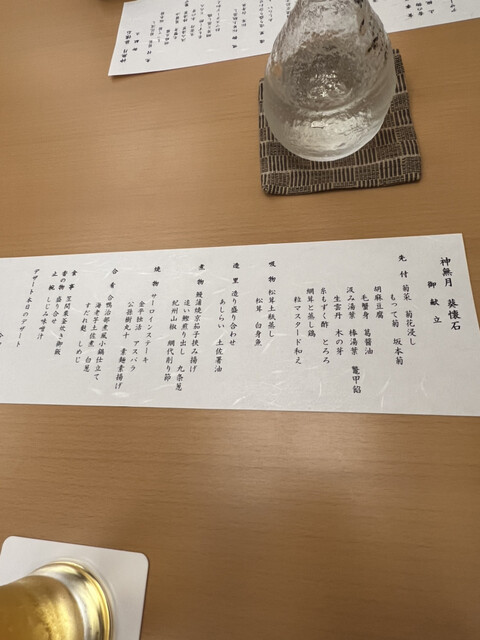 神無月 葵懐石
御献立
先付 菊菜 菊花浸し
もって菊 坂本菊
胡麻豆腐
毛蟹身 葛醤油
汲み湯葉 棒湯葉 鼈甲餡
生雲丹 木の芽
糸もずく酢 とろろ
鯛茸と蒸し鶏
粒マスタード和え
吸物 松茸土瓶蒸し
松茸 白身魚
造里 造り盛り合わせ
あしらい 土佐醤油
煮物 鰻蒲焼京茄子挟み揚げ
追い鰹煎り出し 九条葱
紀州山椒 網代削り節
焼物 サーロインステーキ
金針法 アスパラ
公孫樹丸十 素麺素揚げ
合肴 合鴨治部煮風小鍋仕立て
海老芋土佐煮 白葱
すだれ麩 しめじ
食事 笠間栗釜炊き御飯
香の物 盛り合せ
止椀 しじみ味噌汁
デザート 本日のデザート